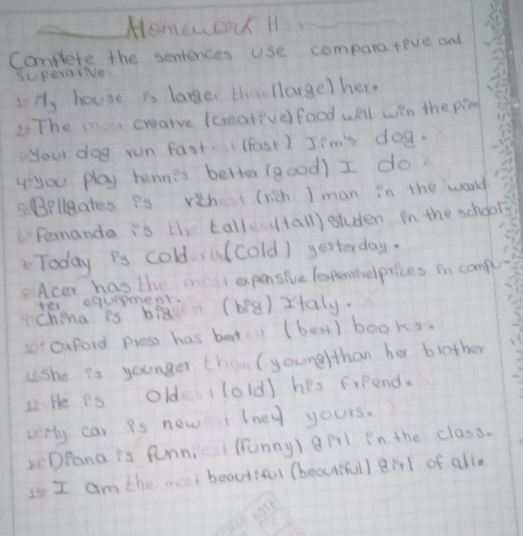 Homework 11
Complete the sentences use comparateve and
superative.
1. My house is larger than (large) her.
2. The most creatve (creative) food will win the
3. Your dog run fastest (fast) Jim's dog.
4. you play tennis better (good) I do
5. Billgates is richest (rich) man in the world.
6. fernanda is the tallest (tall) studen in the school
7. Today is colder (cold) yesterday.
8. Acer has the most expensive (expensive) prices in compu-
ter equipment.
9. China is biggest (big) Italy.
10. Oxford press has best (best) books.
11. She is younger than (young) than her brother
12. He is oldest (old) his friend.
13. My car is newest (new) yours.
14. Diana is funniest (funny) girl in the class.
15. I am the most beautiful (beautiful) girl of all.